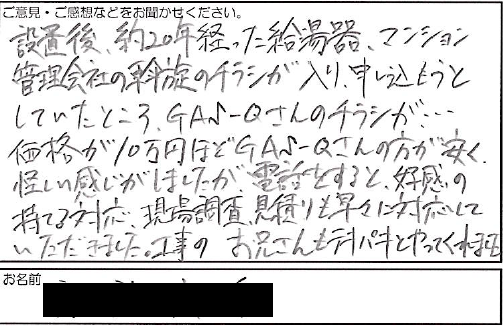 ご意見・ご感想などをお聞かせください。
設置後、約20年経った給湯器、マンション
管理会社の斡旋のチラシが入り、申し込もうと
していたところ、GAS-Qさんのチラシが…
価格が10万円ほどGAS-Qさんの方が安く、
怪しい感じがしましたが、電話をすると、好感の
持てる対応、現場調査、見積りも早々に対応して
いただきました。工事の お兄さんもテキパキとやってくれま
お名前